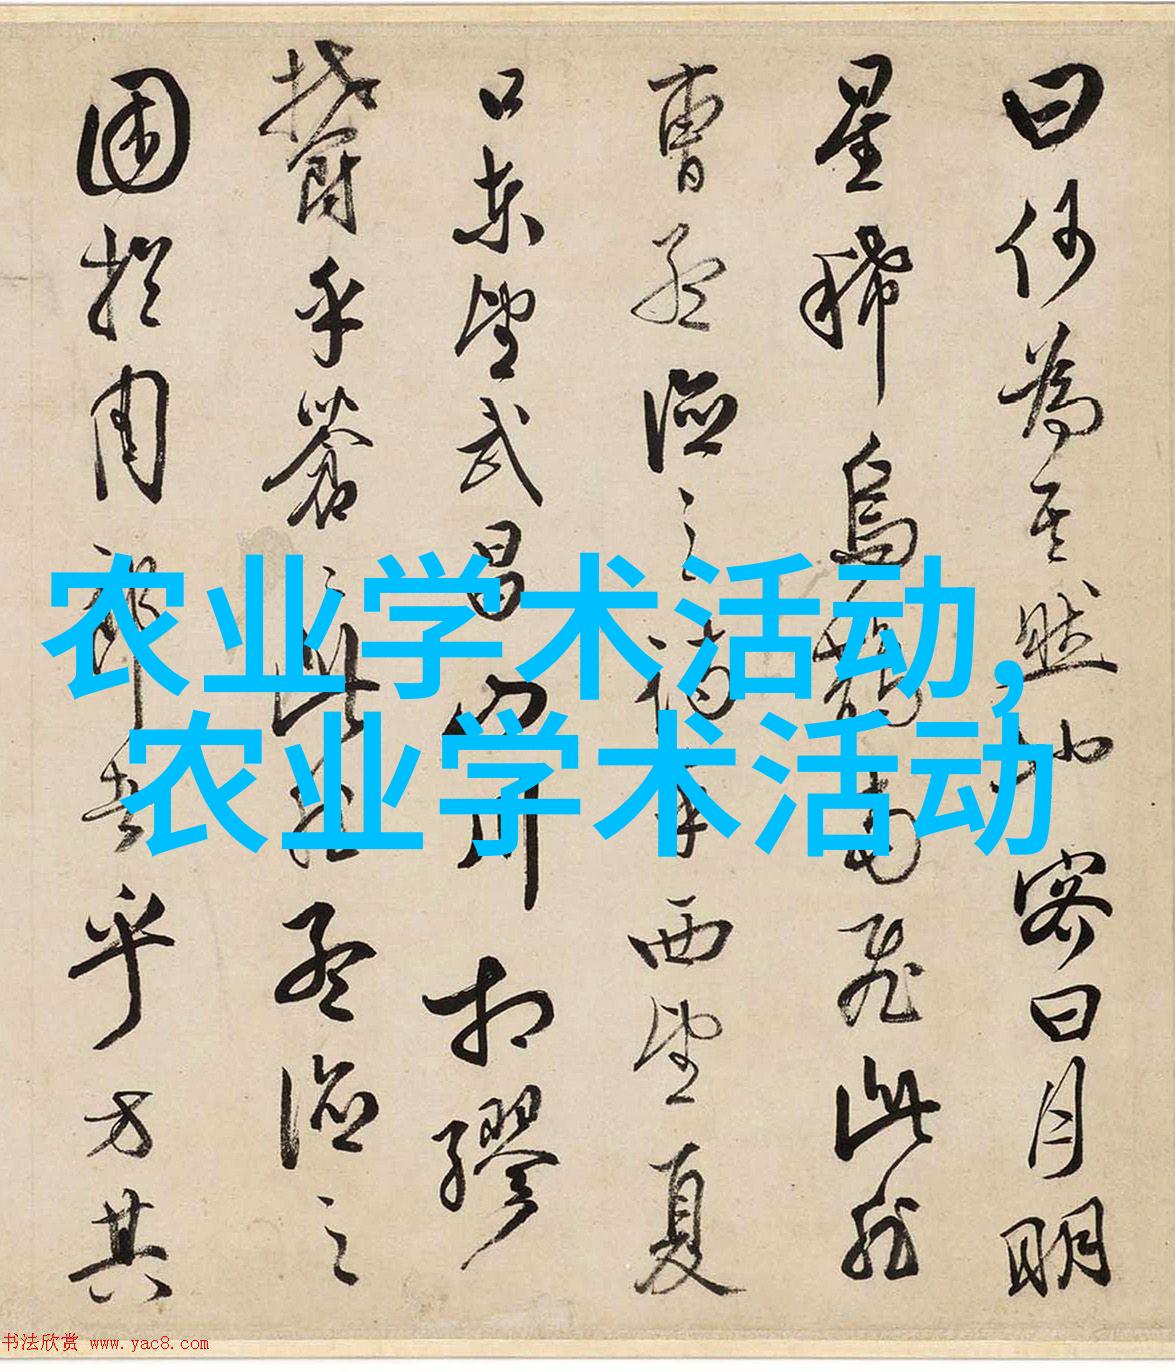 曰何為其然也客曰月明
星稀烏鵲南飛此非
曹孟德之詩乎西望夏
口東望武昌山川相繆
鬱乎蒼〻此非孟德之
困於周郎者乎方其
农业学术活动,
农业学术活动
书法欣赏 www.yac8.com